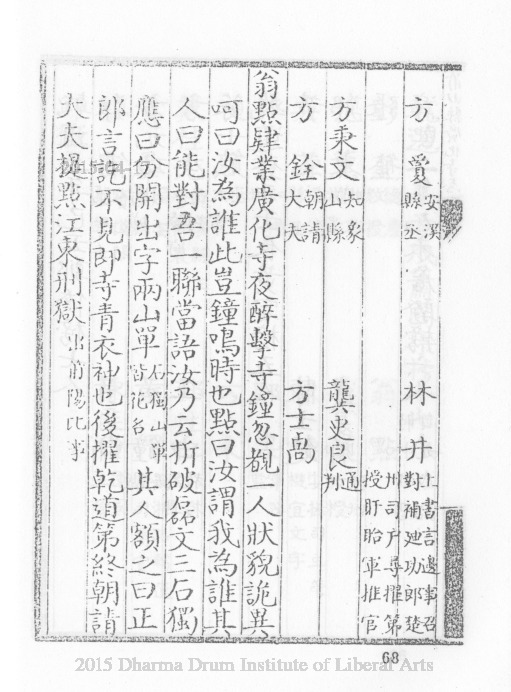 方夐安溪縣丞 林丼上書言邊事召對補廸功郎楚州司户尋擢第授盱眙軍推官
方秉文知象山縣 龔史良通判
方銓朝請大夫 方士卨
翁點肄業廣化寺夜醉擊寺鐘忽覩一人狀貌詭異
呵曰汝為誰此豈鐘鳴時也點曰汝謂我為誰其
人曰能對吾一聯當語汝乃云斫破磊文三石獨
應曰分開出字兩山單石獨山單皆花名其人額之曰正
郎言訖不見即寺青衣神也後擢乾道第終朝請
大夫提點江東刑獄出莆陽比事
68
2015 Dharma Drum Institute of Liberal Arts